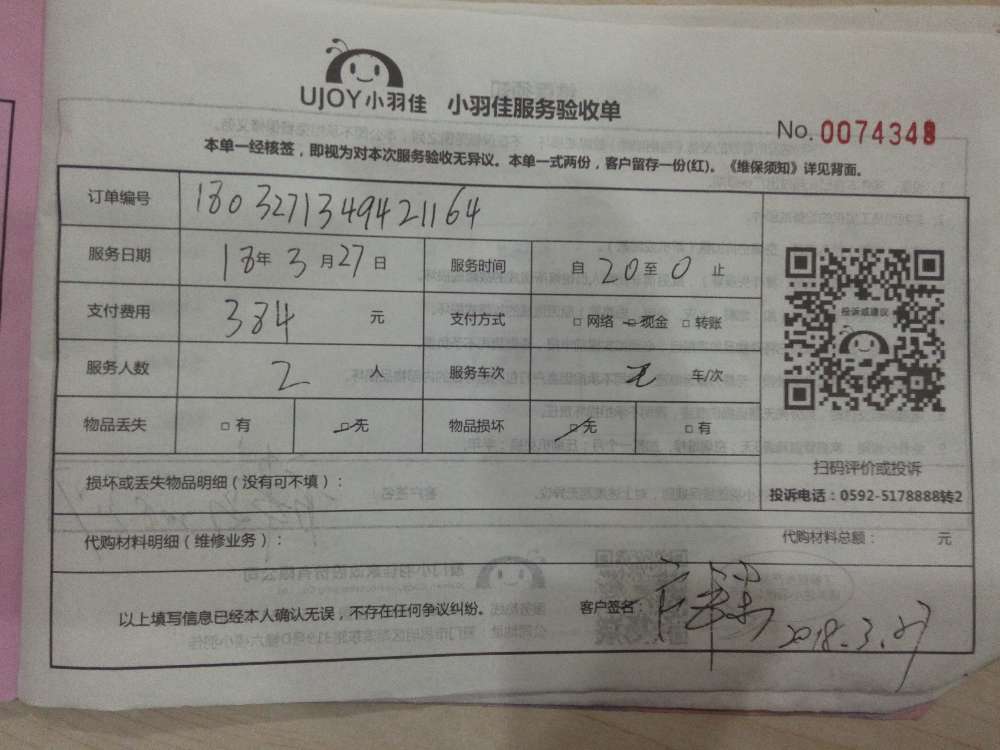 UJOY小羽佳 小羽佳服务验收单
No. 0074348
本单一经核签，即视为对本次服务验收无异议。本单一式两份，客户留存一份(红)。《维保须知》详见背面。
订单编号 1803271349421164
服务日期 18年3月27日 服务时间 自20至0止
支付费用 384 元 支付方式 □网络 □现金 □转账
服务人数 2 人 服务车次 无 车/次
物品丢失 □有 □无 物品损坏 □无 □有
投诉或建议
扫码评价或投诉
投诉电话：0592-5178888转2
损坏或丢失物品明细（没有可不填）：
代购材料明细（维修业务）： 代购材料总额： 元
以上填写信息已经本人确认无误，不存在任何争议纠纷。 客户签名： 2018.3.27